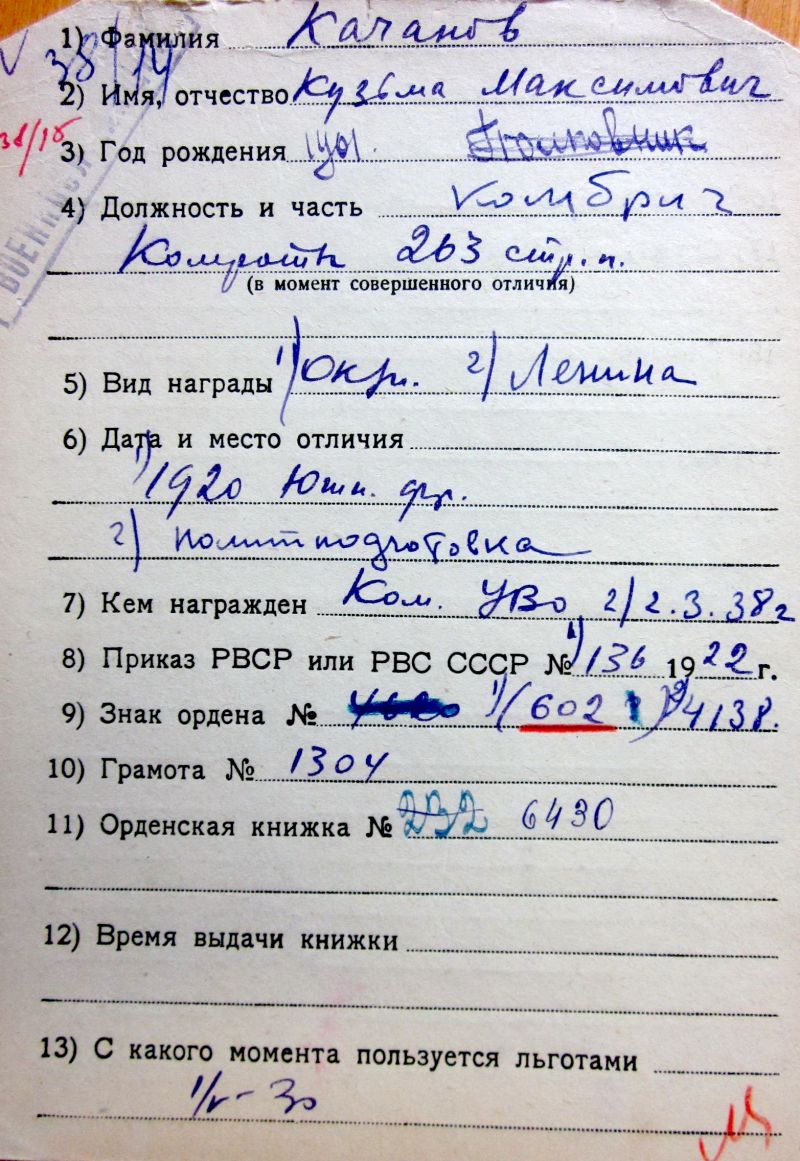 1) Фамилия Качанов
38/14
2) Имя, отчество Кузьма Максимович
38/15
3) Год рождения 1901. Полковник
4) Должность и часть комбриг
Комроты 263 стр. п.
(в момент совершенного отличия)
5) Вид награды 1) Окр. 2) Ленина
6) Дата и место отличия
1) 1920 Южн. фр.
2) политподготовка
7) Кем награжден Ком. УВО 2) 2.3.38 г
8) Приказ РВСР или РВС СССР № 1) 136 1922 г.
9) Знак ордена № 1) (602) 2) 4138.
10) Грамота № 1304
11) Орденская книжка № 232 6430
12) Время выдачи книжки
13) С какого момента пользуется льготами
1/V-30